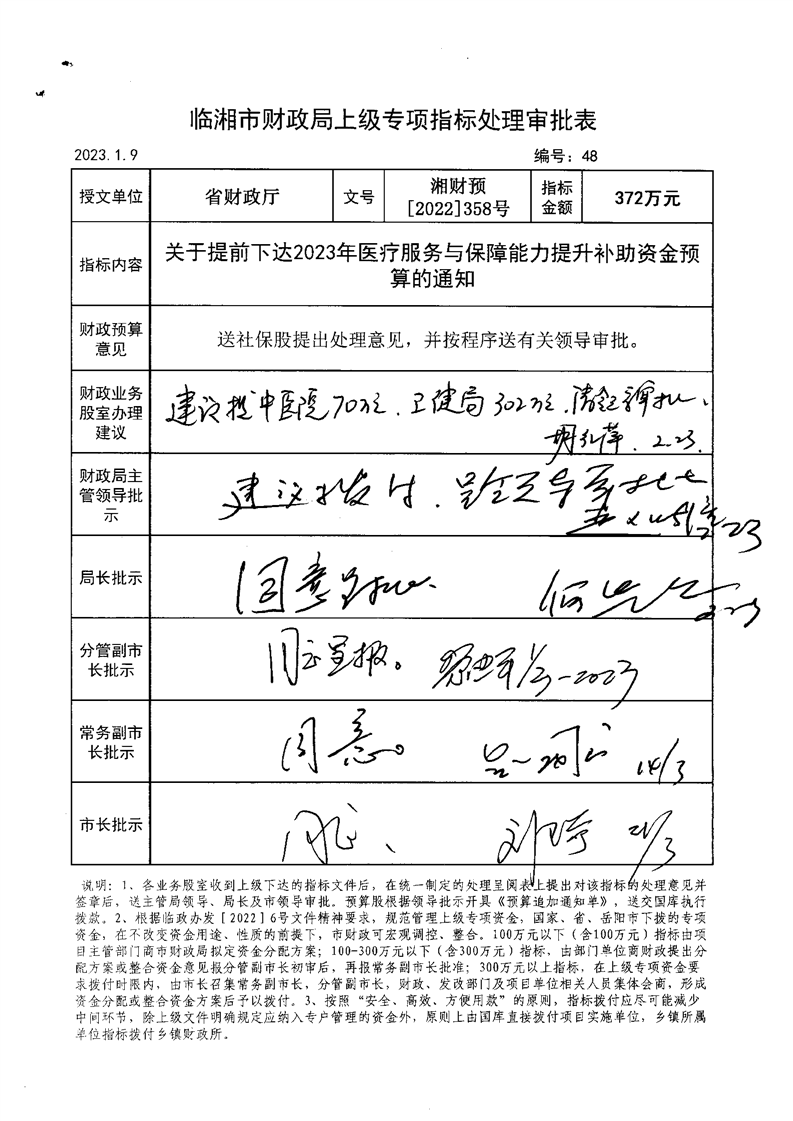 临湘市财政局上级专项指标处理审批表
2023.1.9 编号：48
授文单位 省财政厅 文号 湘财预[2022]358号 指标金额 372万元
指标内容 关于提前下达2023年医疗服务与保障能力提升补助资金预
算的通知
财政预算
意见
送社保股提出处理意见，并按程序送有关领导审批。
财政业务
股室办理
建议
建议拨中医院70万元、卫健局302万元，请领导审批。
2.23.
财政局主
管领导批
示
建议拨付，呈全天导
2.23
局长批示
同意呈批
分管副市
长批示
同意呈报。
1/3-2023
常务副市
长批示
同意。
14/3
市长批示
同意、
刘琦 21/3
说明：1、各业务股室收到上级下达的指标文件后，在统一制定的处理呈阅表上提出对该指标的处理意见并
签章后，送主管局领导、局长及市领导审批。预算股根据领导批示开具《预算追加通知单》，送交国库执行
拨款。2、根据临政办发［2022］6号文件精神要求，规范管理上级专项资金，国家、省、岳阳市下拨的专项
资金，在不改变资金用途、性质的前提下，市财政可宏观调控、整合。100万元以下（含100万元）指标由项
目主管部门商市财政局拟定资金分配方案；100-300万元以下（含300万元）指标，由部门单位商财政提出分
配方案或整合资金意见报分管副市长初审后，再报常务副市长批准；300万元以上指标，在上级专项资金要
求拨付时限内，由市长召集常务副市长，分管副市长，财政、发改部门及项目单位相关人员集体会商，形成
资金分配或整合资金方案后予以拨付。3、按照“安全、高效、方便用款”的原则，指标拨付应尽可能减少
中间环节，除上级文件明确规定应纳入专户管理的资金外，原则上由国库直接拨付项目实施单位，乡镇所属
单位指标拨付乡镇财政所。